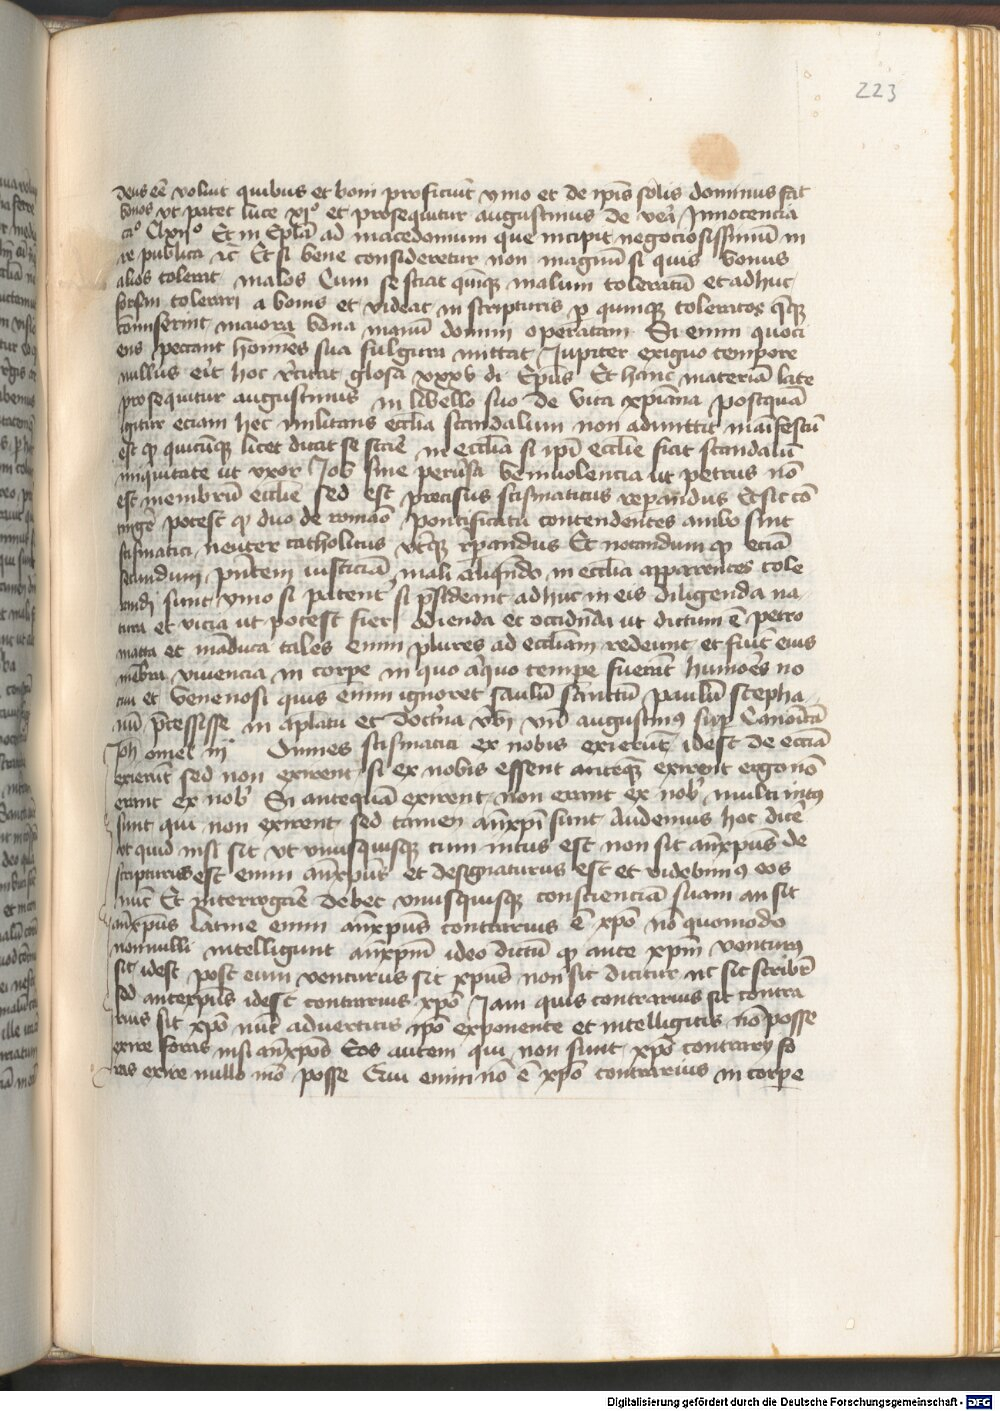 223
deus eē voluit quibus et boni proficiūt ymo et de ipīs solis dominus fac
bonos vt patet luce xj° et prosequitur augustinus de vera Innocencia
ca° Clxij° Et in Epła ad macedonium que incipit negociosissimū in
re publica ꝛc̄ Et si bene consideretur non magnū si quis bonus
alios tolerat malos Cum se sciat qn̄qꝫ malum toleratū et adhuc
forsin tolerari a bonis et videat in scripturis ꝑ quinqꝫ toleratos
commiserint maiora bona manū domini operatam Si enim quoci
ens peccant homines sua fulgura mittat Jupiter exiguo tempore
nullus erit hoc recitat glosa xxxv di Ep̄us Et hanc materiā late
prosequitur augustinus in libello suo de vita xp̄iana postquā
igitur eciam hec militans ecclīa scandalum non admittit manifestū
est qꝫ quicūqꝫ licet dicat se siciē in ecclīa si ipī ecclīe fiat scandalū
iniquitate ut vxor Job siue peruersa beniuolencia ut petrus nō
est membrū ecclīe sed est precisus scismaticus repandus Et sic cō
tingē potest qꝫ duo de romāo pontificatu contendentes ambo sint
scismatici neuter catholicus vterqꝫ rep̄andus Et notandum qꝫ eciā
secundum pn̄tem iusticiā mali aliqn̄do in ecclīa apparentes tole
randi sunt ymo si patent si p̄sideant adhuc in eis diligenda na
tura et vicia ut potest fieri odienda et occidn̄da ut dictum ē petro
macta et māduca tales enim plures ad ecclīam redeunt et fiūt eius
mēbra viuencia in corpe in quo aliquo tempe fuerāt humores no
ciui et venenosi quis enim ignoret saulū sanctū paulū stepha
nū p̄cessisse in ap̄latu et doctrina vbi vn̄ augustinꝯ sup Canonicā
Joh omel iij Omnes scismatici ex nobis exierūt idest de ecclīa
exierūt sed non exirent si ex nobis essent anteqꝫ exirent ergo nō
erant ex nob̄ Si antequā exirent non erant ex nob̄ multi intꝯ
sunt qui non exirent sed tamen antixpī sunt Audemus hoc dicē
vt quid nisi sit vt vnusquisqꝫ cum intus est non sit antixpūs de
scripturus est enim antixpūs et designaturus est et videbimꝯ eos
nūc Et interrogāre debet vnusquisqꝫ conscienciā suam an sit
antixpūs latine enim antixpūs contrarius ē xpō nō quomodo
nonnulli intelligunt antixpm̄ ideo dictū qꝫ ante xpm̄ venturꝯ
sit idest post eum venturus sit xpūs non sic dicitur nc sic scribit̄
sed antexpūs idest contrarius xpō Jam quis contrarius sit contra
rius sit xpō nūc aduertitis ipō exponente et intelligitis nō posse
exire foras nisi antixpōs Eos autem qui non sunt xpō contrarij fo
ras exire nullo mō posse Qui enim nō ē xpō contrarius in corpe
Digitalisierung gefördert durch die Deutsche Forschungsgemeinschaft - DFG